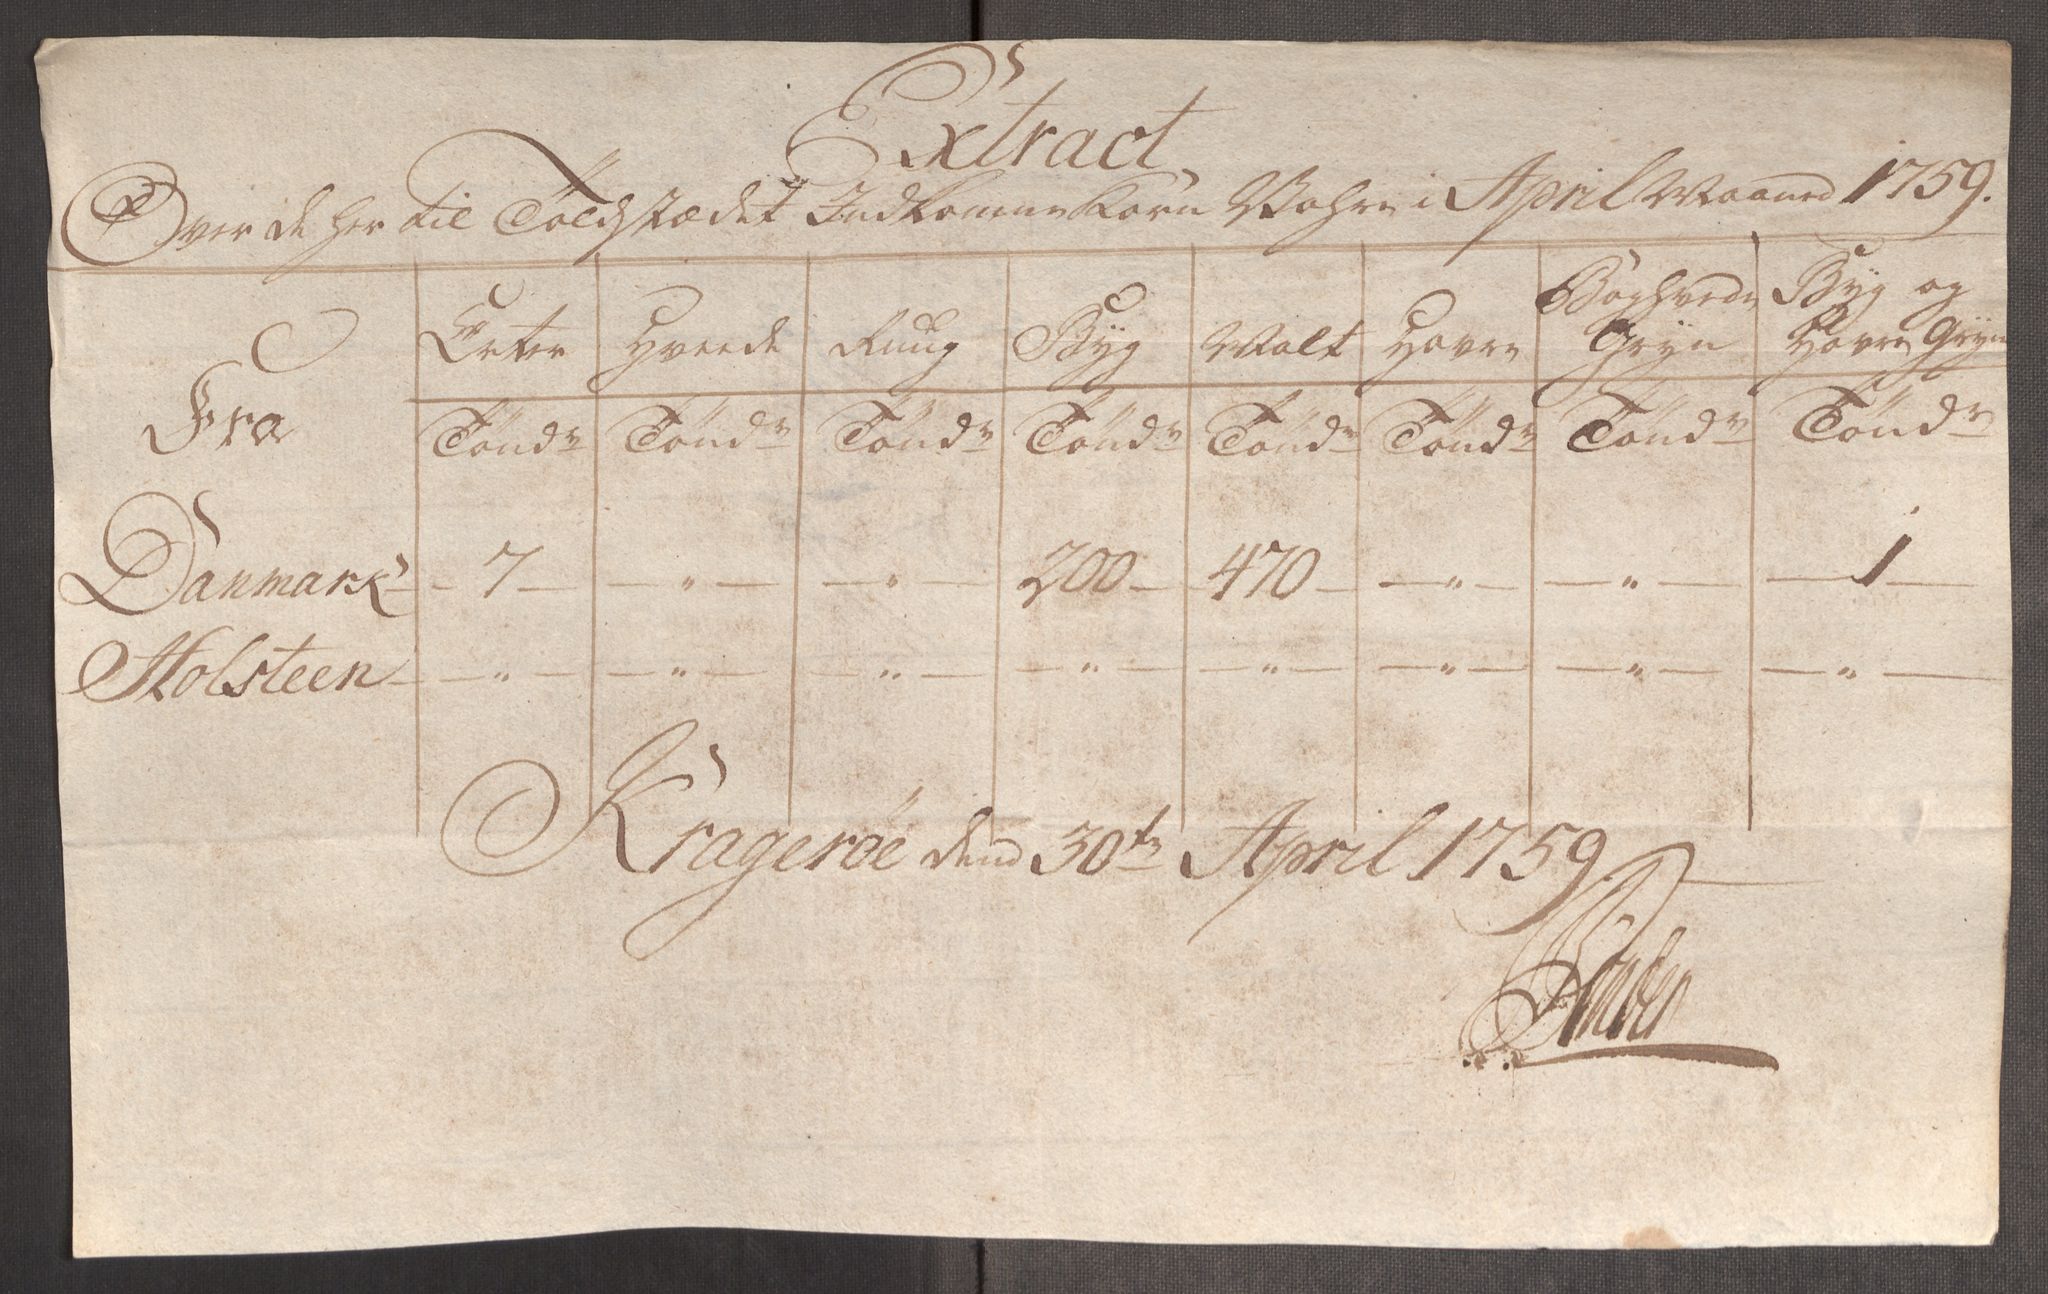 Extract
Over de her til Toldstædet Indkomne Korn Wahre i April Maaned 1759.
Fra Erter Hveede Ruug Byg Malt Havre Boghvede Gryn Byg og Havre Gryn
Tönder Tönder Tönder Tönder Tönder Tönder Tönder Tönder
Danmark - 7 - - " - - " - 200 - 470 - - " - - " - - 1 -
Holsteen - - " - - " - - " - - " - - " - - " - - " - - " -
Kragerøe dend 30te April 1759